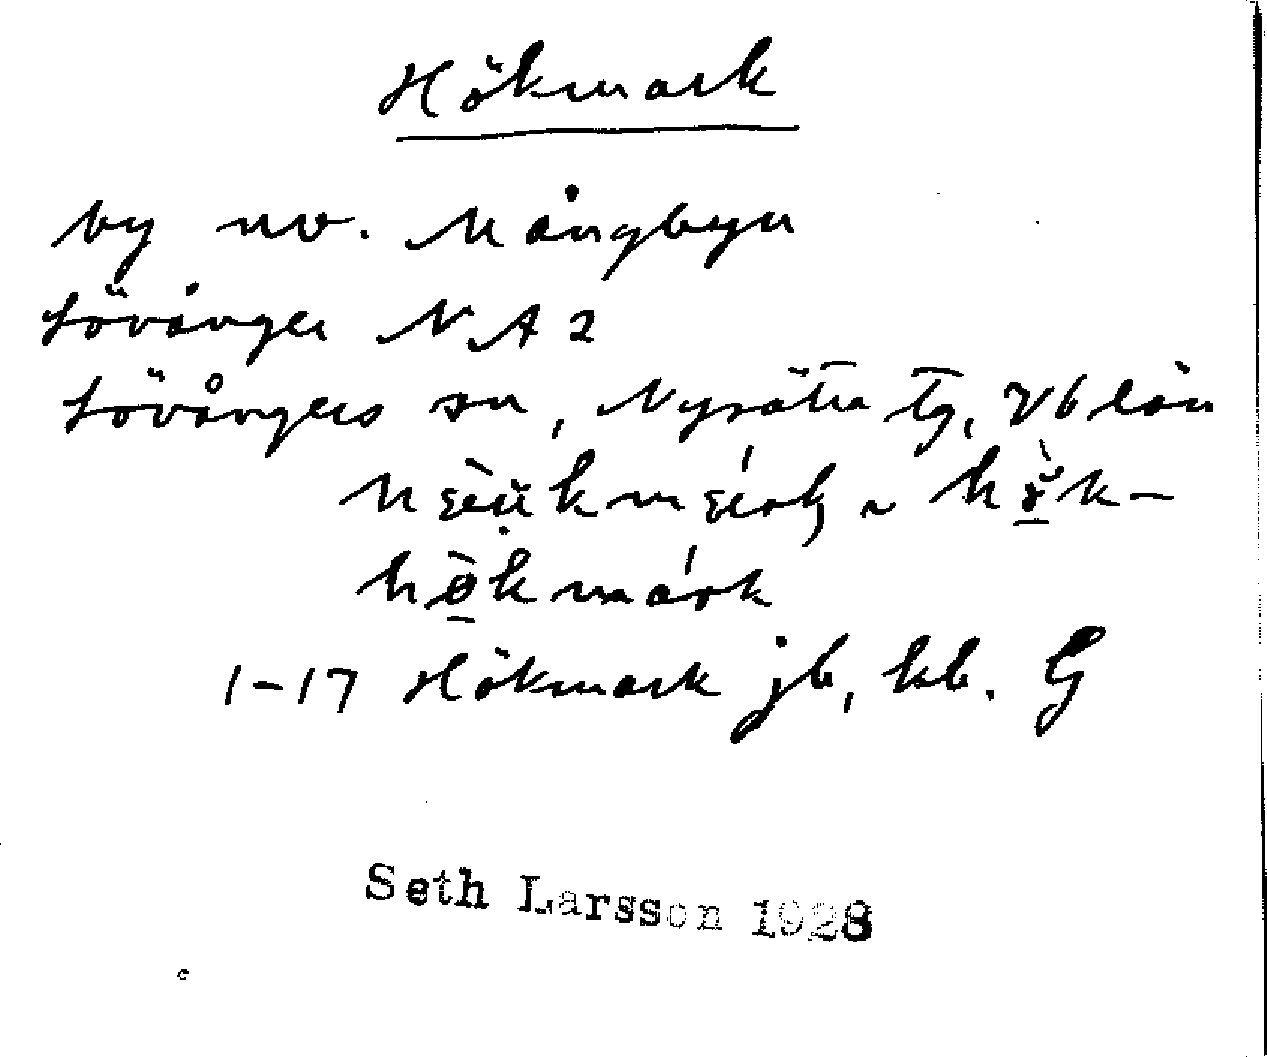 Hökmark
by nv. Mångbyn
Lövånger NA 2
Lövångers sn, Nysätra tg, Vb län
hök-
hökmark
1-17 Hökmark jb, kb. G
Seth Larsson 1928